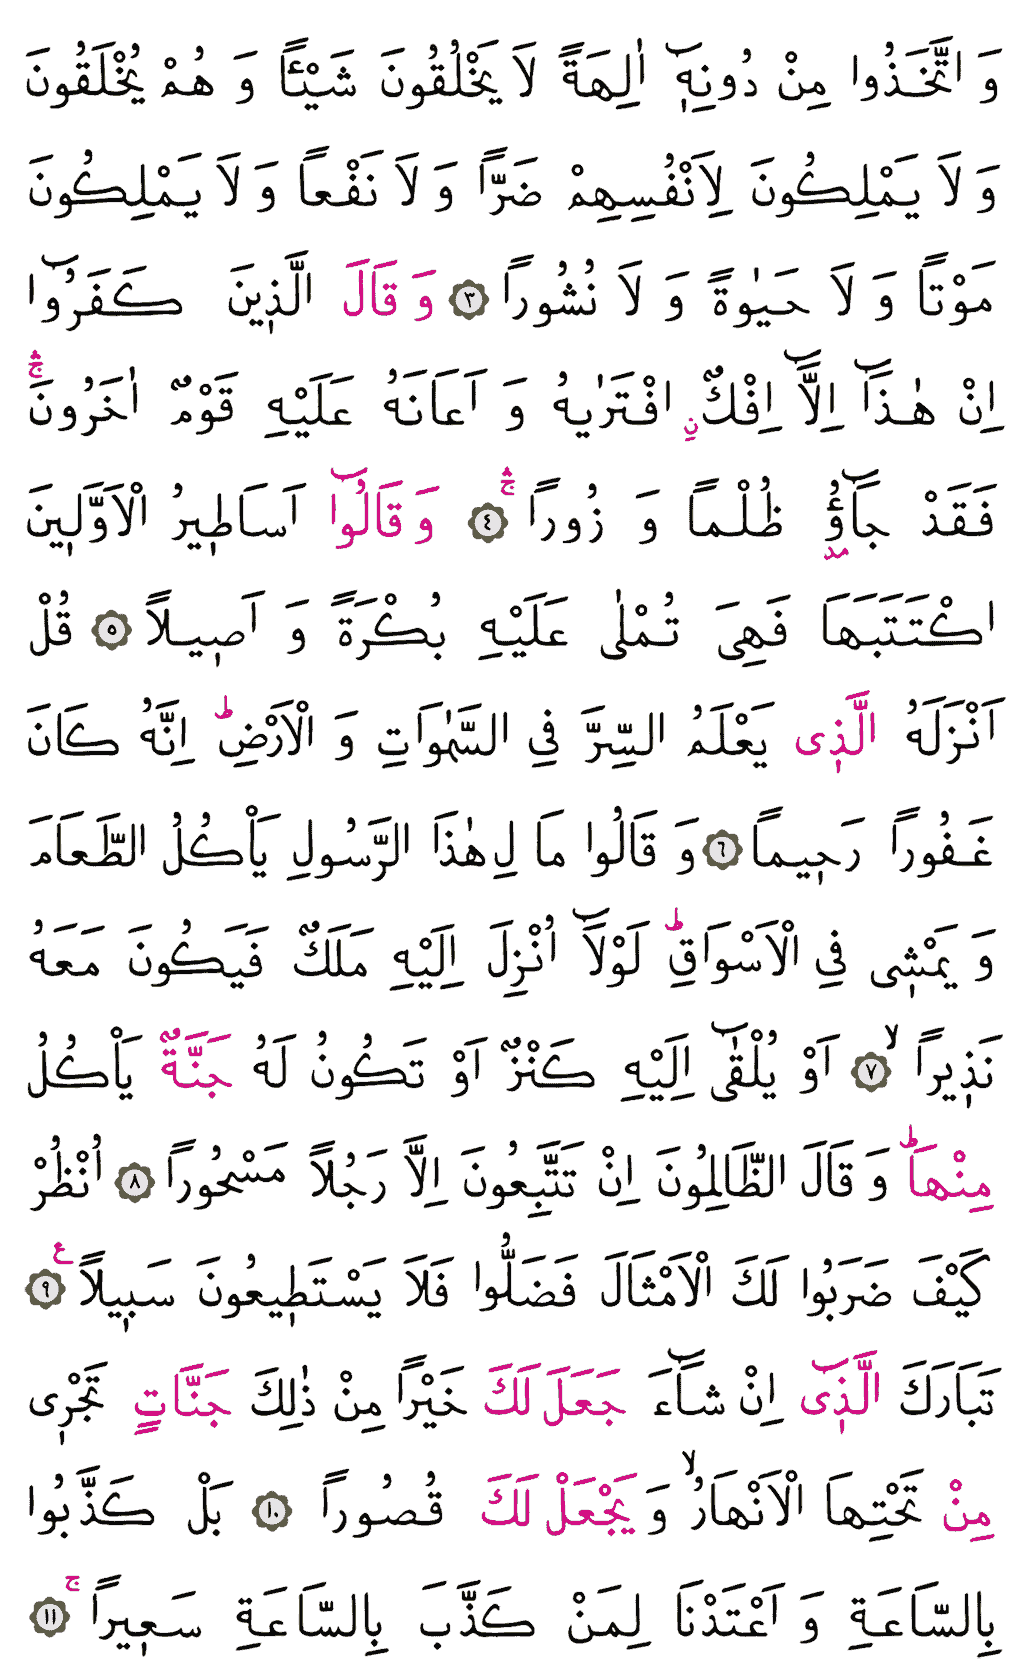 وَ اتَّخَذُوا مِنْ دُونِهٖٓ اٰلِهَةً لَا يَخْلُقُونَ شَيْـًٔا وَ هُمْ يُخْلَقُونَ
وَ لَا يَمْلِكُونَ لِاَنْفُسِهِمْ ضَرًّا وَ لَا نَفْعاً وَ لَا يَمْلِكُونَ
مَوْتاً وَ لَا حَيٰوةً وَ لَا نُشُوراً ﴿٣﴾ وَ قَالَ الَّذٖينَ كَفَرُٓوا
اِنْ هٰذَٓا اِلَّٓا اِفْكٌ نِ افْتَرٰيهُ وَ اَعَانَهُ عَلَيْهِ قَوْمٌ اٰخَرُونَۚۛ
فَقَدْ جَٓاؤُ ظُلْماً وَ زُوراً ۚۛ ﴿٤﴾ وَ قَالُٓوا اَسَاطٖيرُ الْاَوَّلٖينَ
اكْتَتَبَهَا فَهِىَ تُمْلٰى عَلَيْهِ بُكْرَةً وَ اَصٖيلاً ﴿٥﴾ قُلْ
اَنْزَلَهُ الَّذٖى يَعْلَمُ السِّرَّ فِي السَّمٰوَاتِ وَ الْاَرْضِؕ اِنَّهُ كَانَ
غَفُوراً رَحٖيماً ﴿٦﴾ وَ قَالُوا مَا لِ هٰذَا الرَّسُولِ يَاْكُلُ الطَّعَامَ
وَ يَمْشٖى فِي الْاَسْوَاقِؕ لَوْلَٓا اُنْزِلَ اِلَيْهِ مَلَكٌ فَيَكُونَ مَعَهُ
نَذٖيراً ۙ ﴿٧﴾ اَوْ يُلْقٰٓى اِلَيْهِ كَنْزٌ اَوْ تَكُونُ لَهُ جَنَّةٌ يَاْكُلُ
مِنْهَاؕ وَ قَالَ الظَّالِمُونَ اِنْ تَتَّبِعُونَ اِلَّا رَجُلاً مَسْحُوراً ﴿٨﴾ اُنْظُرْ
كَيْفَ ضَرَبُوا لَكَ الْاَمْثَالَ فَضَلُّوا فَلَا يَسْتَطٖيعُونَ سَبٖيلاً ع ﴿٩﴾
تَبَارَكَ الَّذٖٓى اِنْ شَٓاءَ جَعَلَ لَكَ خَيْراً مِنْ ذٰلِكَ جَنَّاتٍ تَجْرٖى
مِنْ تَحْتِهَا الْاَنْهَارُۙ وَ يَجْعَلْ لَكَ قُصُوراً ﴿١٠﴾ بَلْ كَذَّبُوا
بِالسَّاعَةِ وَ اَعْتَدْنَا لِمَنْ كَذَّبَ بِالسَّاعَةِ سَعٖيراً ۚ ﴿١١﴾